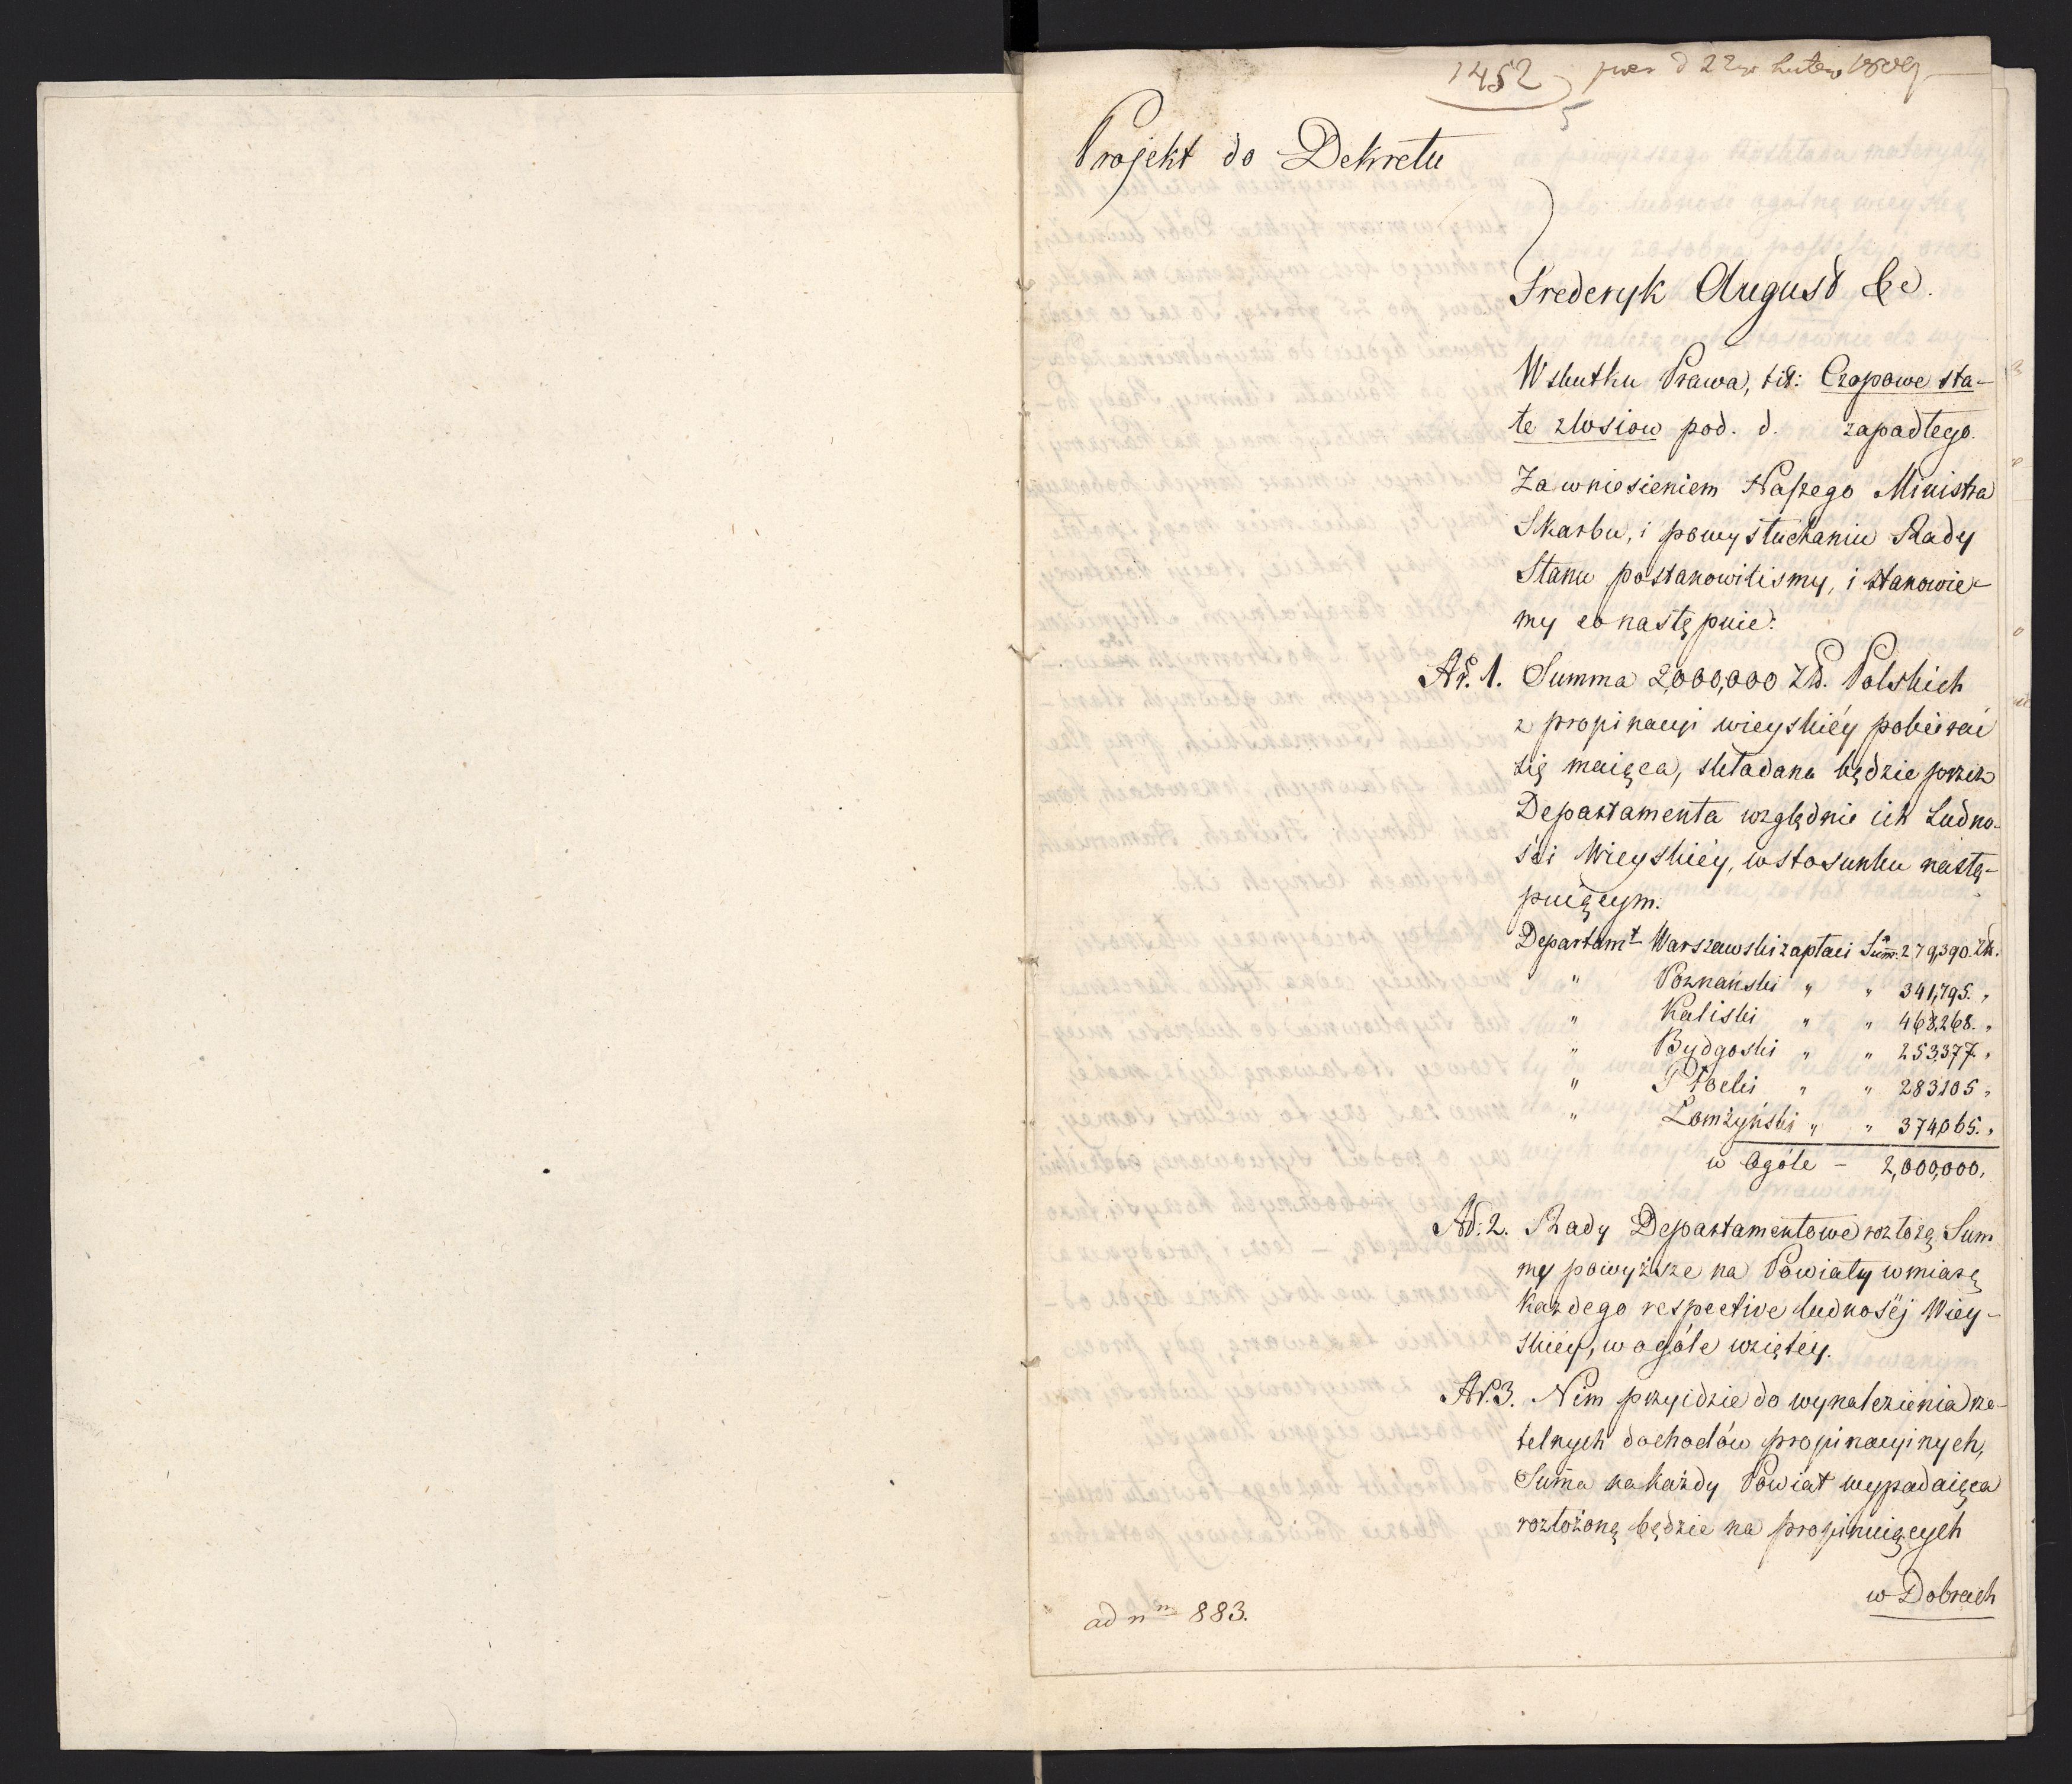 1452
5
d 22 1809
Projekt do Dekretu
Frederyk August &c.
Wskutku Prawa, tit: Czopowe sta-
łe z Wsiow pod. d. zapadłego.
Za wniesieniem Naszego Ministra
Skarbu, i powysłuchaniu Rady
Stanu postanowiliśmy, i stanowie-
my co następuie:
Art. 1. Summa 2,000,000 Zł. Polskich
z propinacyi wieyskiéy pobierać
się maiąca, składana będzie przez
Departamenta względnie ich Ludno-
ści Wieyskiéy, w stosunku nastę-
puiącym:
Departamt Warszawski zapłaci Sum̄ę 279,390. Zł.
" Poznański " " 341,795. "
" Kaliski " " 468,268. "
" Bydgoski " " 253,377. "
" Płocki " " 283,105 "
" Łomżyński " " 374,065. "
w Ogóle – 2,000,000,
Art: 2. Rady Departamentowe rozłożą Sum
my powyższe na Powiaty w miarę
każdego respective ludnośći Wiey-
skiéy, w ogóle wziętéy.
Art. 3. Nim przyidzie do wynalezienia rze-
telnych dochodów propinacyinych,
Sum̄a na każdy Powiat wypadaiąca
rozłożoną będzie na propinuiących
w Dobrach
ad nm 883.